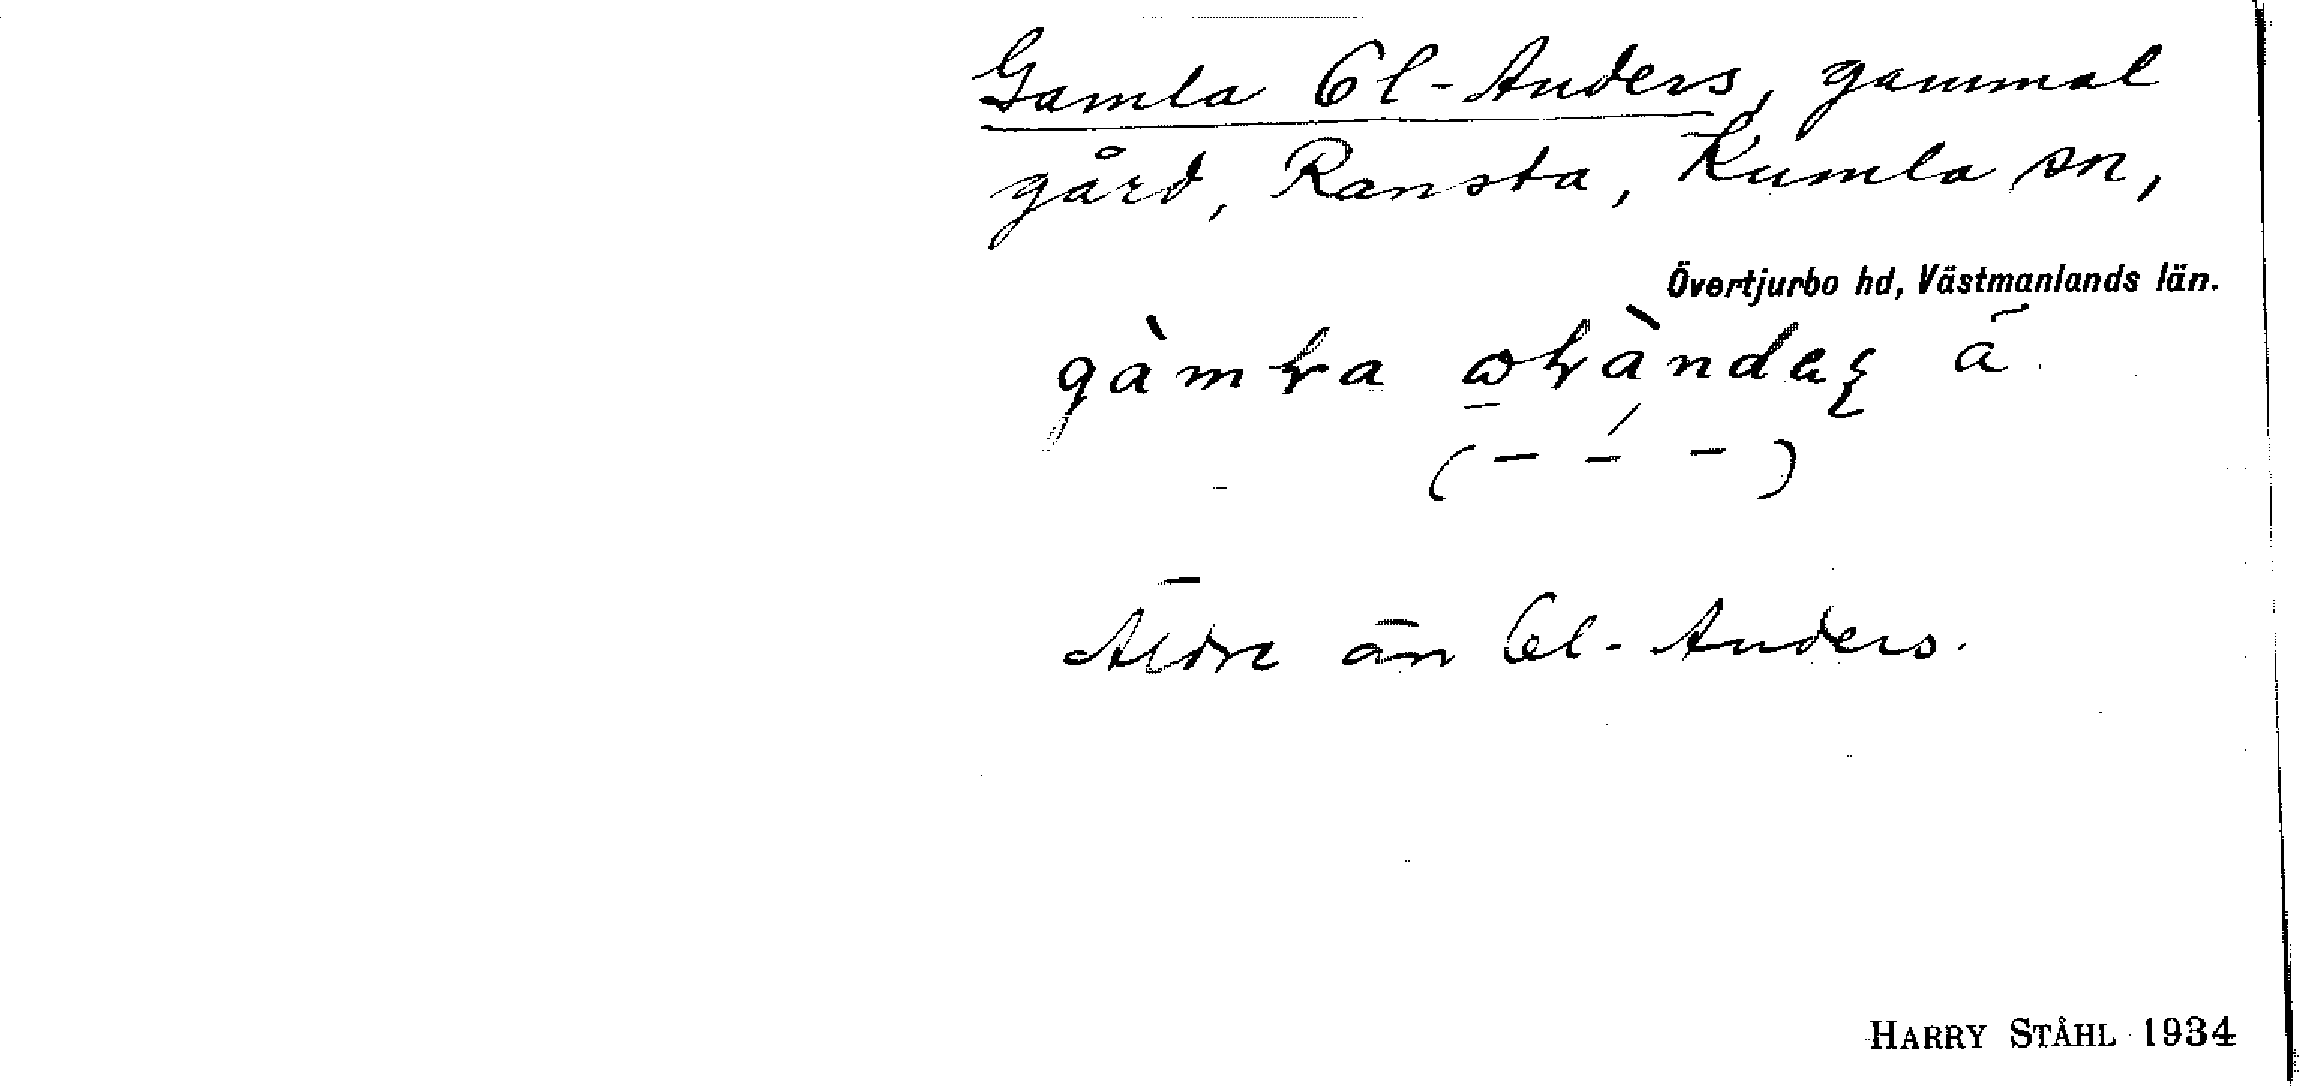 Gamla Ol-Anders, gammal
gård, Ransta, Kumla sn,
Övertjurbo hd, Västmanlands län.
(– –́ –)
Äldre än Ol-Anders.
HARRY STÅHL 1934